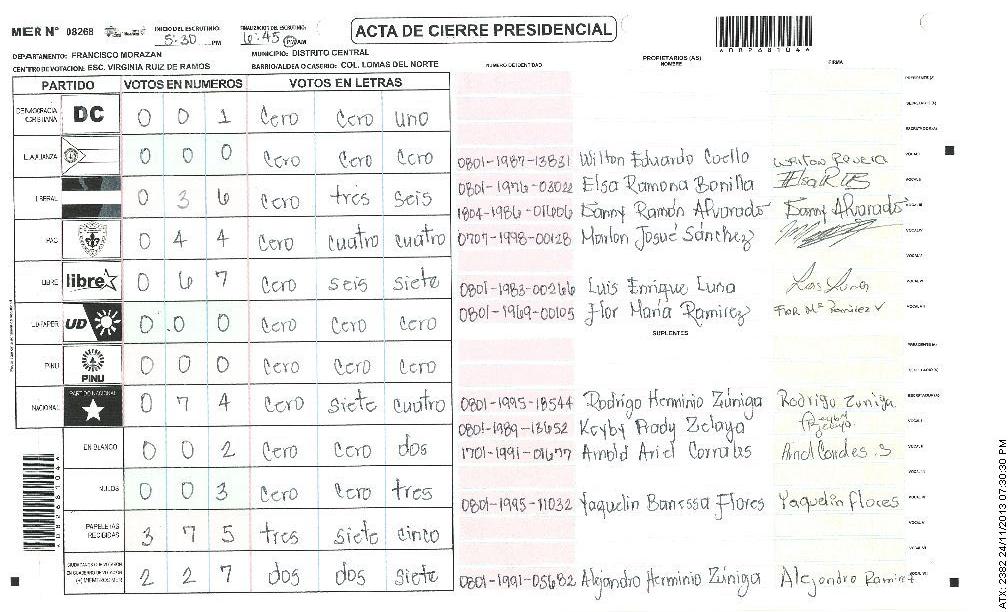 MER Nº 08268 INICIO DEL ESCRUTINIO: 5:30 PM FINALIZACION DEL ESCRUTINIO: 6:45 PM AM
ACTA DE CIERRE PRESIDENCIAL
DEPARTAMENTO: FRANCISCO MORAZAN MUNICIPIO: DISTRITO CENTRAL
CENTRO DE VOTACION: ESC. VIRGINIA RUIZ DE RAMOS BARRIO/ALDEA O CASERIO: COL. LOMAS DEL NORTE
NUMERO DE IDENTIDAD PROPIETARIOS (AS) NOMBRE FIRMA
PARTIDO VOTOS EN NUMEROS VOTOS EN LETRAS
DEMOCRACIA CRISTIANA DC 0 0 1 Cero Cero uno
0 0 0 Cero Cero Cero
LIBERAL 0 3 6 Cero tres seis
PAC 0 4 4 Cero cuatro cuatro
LIBRE libre 0 6 7 Cero seis siete
UD 0 0 0 Cero Cero Cero
PINU PINU 0 0 0 Cero Cero Cero
NACIONAL PARTIDO NACIONAL 0 7 4 Cero siete cuatro
EN BLANCO 0 0 2 Cero Cero dos
NULOS 0 0 3 Cero Cero tres
PAPELETAS RECIBIDAS 3 7 5 tres siete cinco
2 2 7 dos dos siete
0801-1987-13831 Wilton Eduardo Coello
0801-1976-03022 Elsa Ramona Bonilla
1804-1986-01606 Danny Ramón Alvarado Danny Alvarado
0707-1998-00128 Marlon Josué Sánchez
0801-1983-00266 Luis Enrique Luna Luis Luna
0801-1969-00105 Flor María Ramirez Flor Mª Ramirez
SUPLENTES
0801-1995-18544 Rodrigo Herminio Zúniga Rodrigo Zuniga
0801-1989-13652 Keyby Rady Zelaya
1701-1991-01677 Arnold Ariel Corrales
0801-1995-11032 Yaquelin Banessa Flores Yaquelin flores
0801-1991-05682 Alejandro Herminio Zúniga Alejandro
ATX 2382 24/11/2013 07:30:30 PM